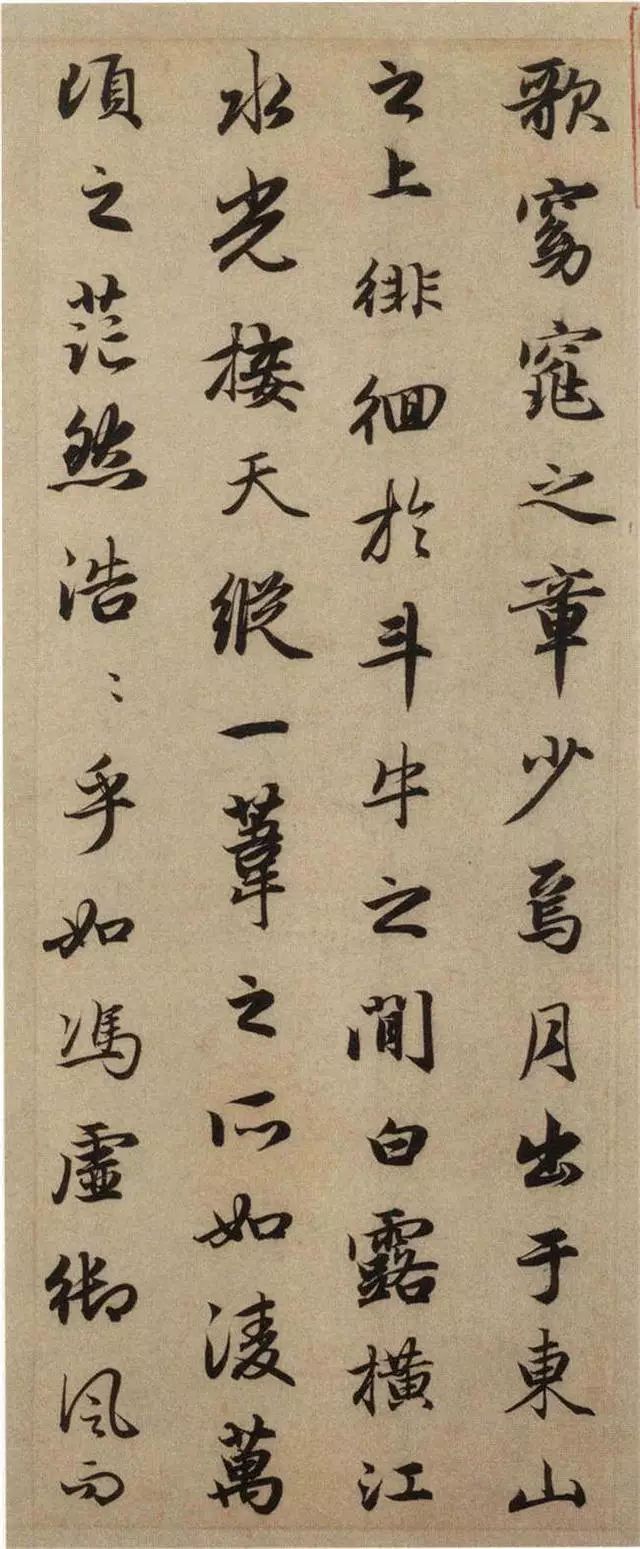 歌窈窕之章少焉月出于東山
之上徘徊於斗牛之間白露橫江
水光接天縱一葦之所如凌萬
頃之茫然浩〻乎如馮虛御風而